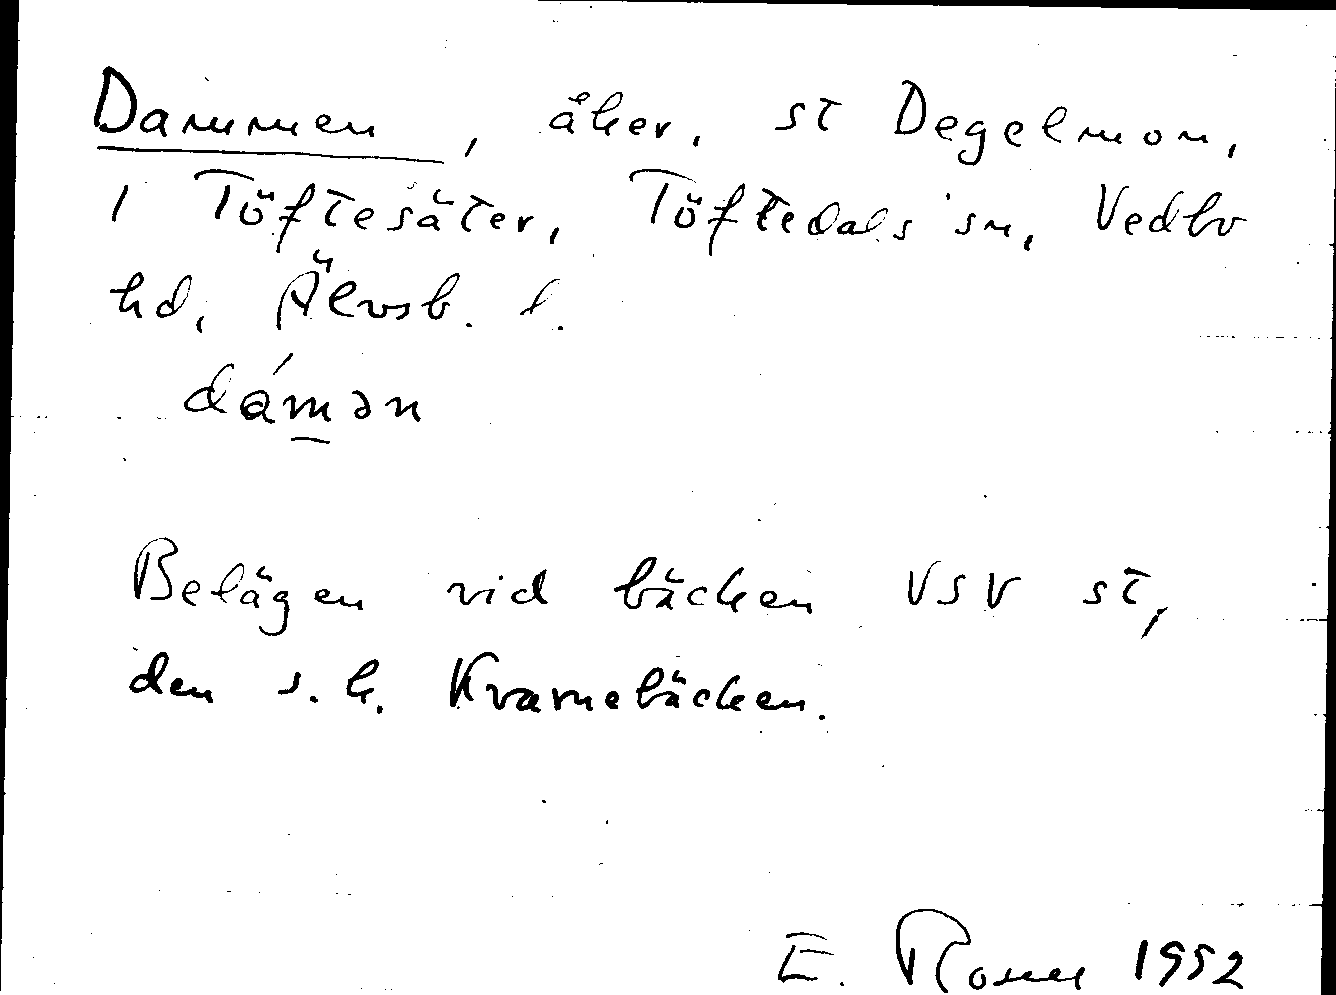 Dammen, åker, st Degelmon,
1 Töftesäter, Töftedals sn, Vedbo
hd, Älvsb. l.
dámən
Belägen vid bäcken VSV st,
den s.k. Kvarnebäcken.
E. Rosell 1952